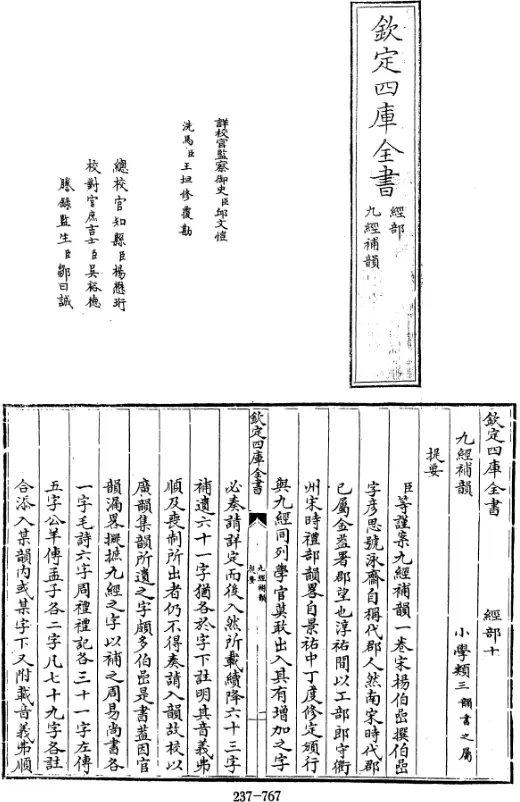 欽定四庫全書
經部
九經補韻
詳校官監察御史臣邱文愷
洗馬臣王坦修覆勘
總校官知縣臣楊懋珩
校對官庶吉士臣吳裕德
謄錄監生臣鄒曰誠
欽定四庫全書
經部十
九經補韻
小學類三韻書之屬
提要
臣等謹案九經補韻一卷宋楊伯嵒撰伯嵒
字彥思號泳齋自稱代郡人然南宋時代郡
已屬金蓋署郡望也淳祐間以工部郎守衢
州宋時禮部韻畧自景祐中丁度修定頒行
與九經同列學官莫敢出入其有增加之字
欽定四庫全書
九經補韻
提要
一
必奏請詳定而後入然所載續降六十三字
補遺六十一字猶各於字下註明其音義弗
順及喪制所出者仍不得奏請入韻故校以
廣韻集韻所遺之字頗多伯嵒是書蓋因官
韻漏畧擬摭九經之字以補之周易尚書各
一字毛詩六字周禮禮記各三十一字左傳
五字公羊傳孟子各二字凡七十九字各註
合添入某韻內或某字下又附載音義弗順
237-767